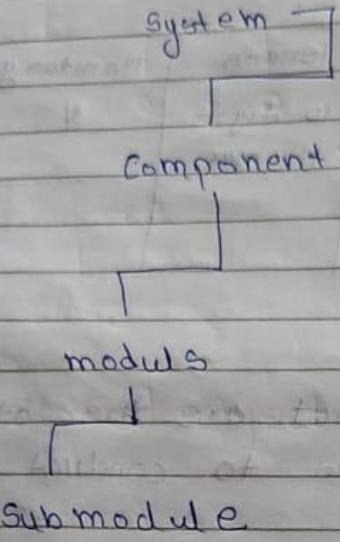 system
Component
moduls
Submodule